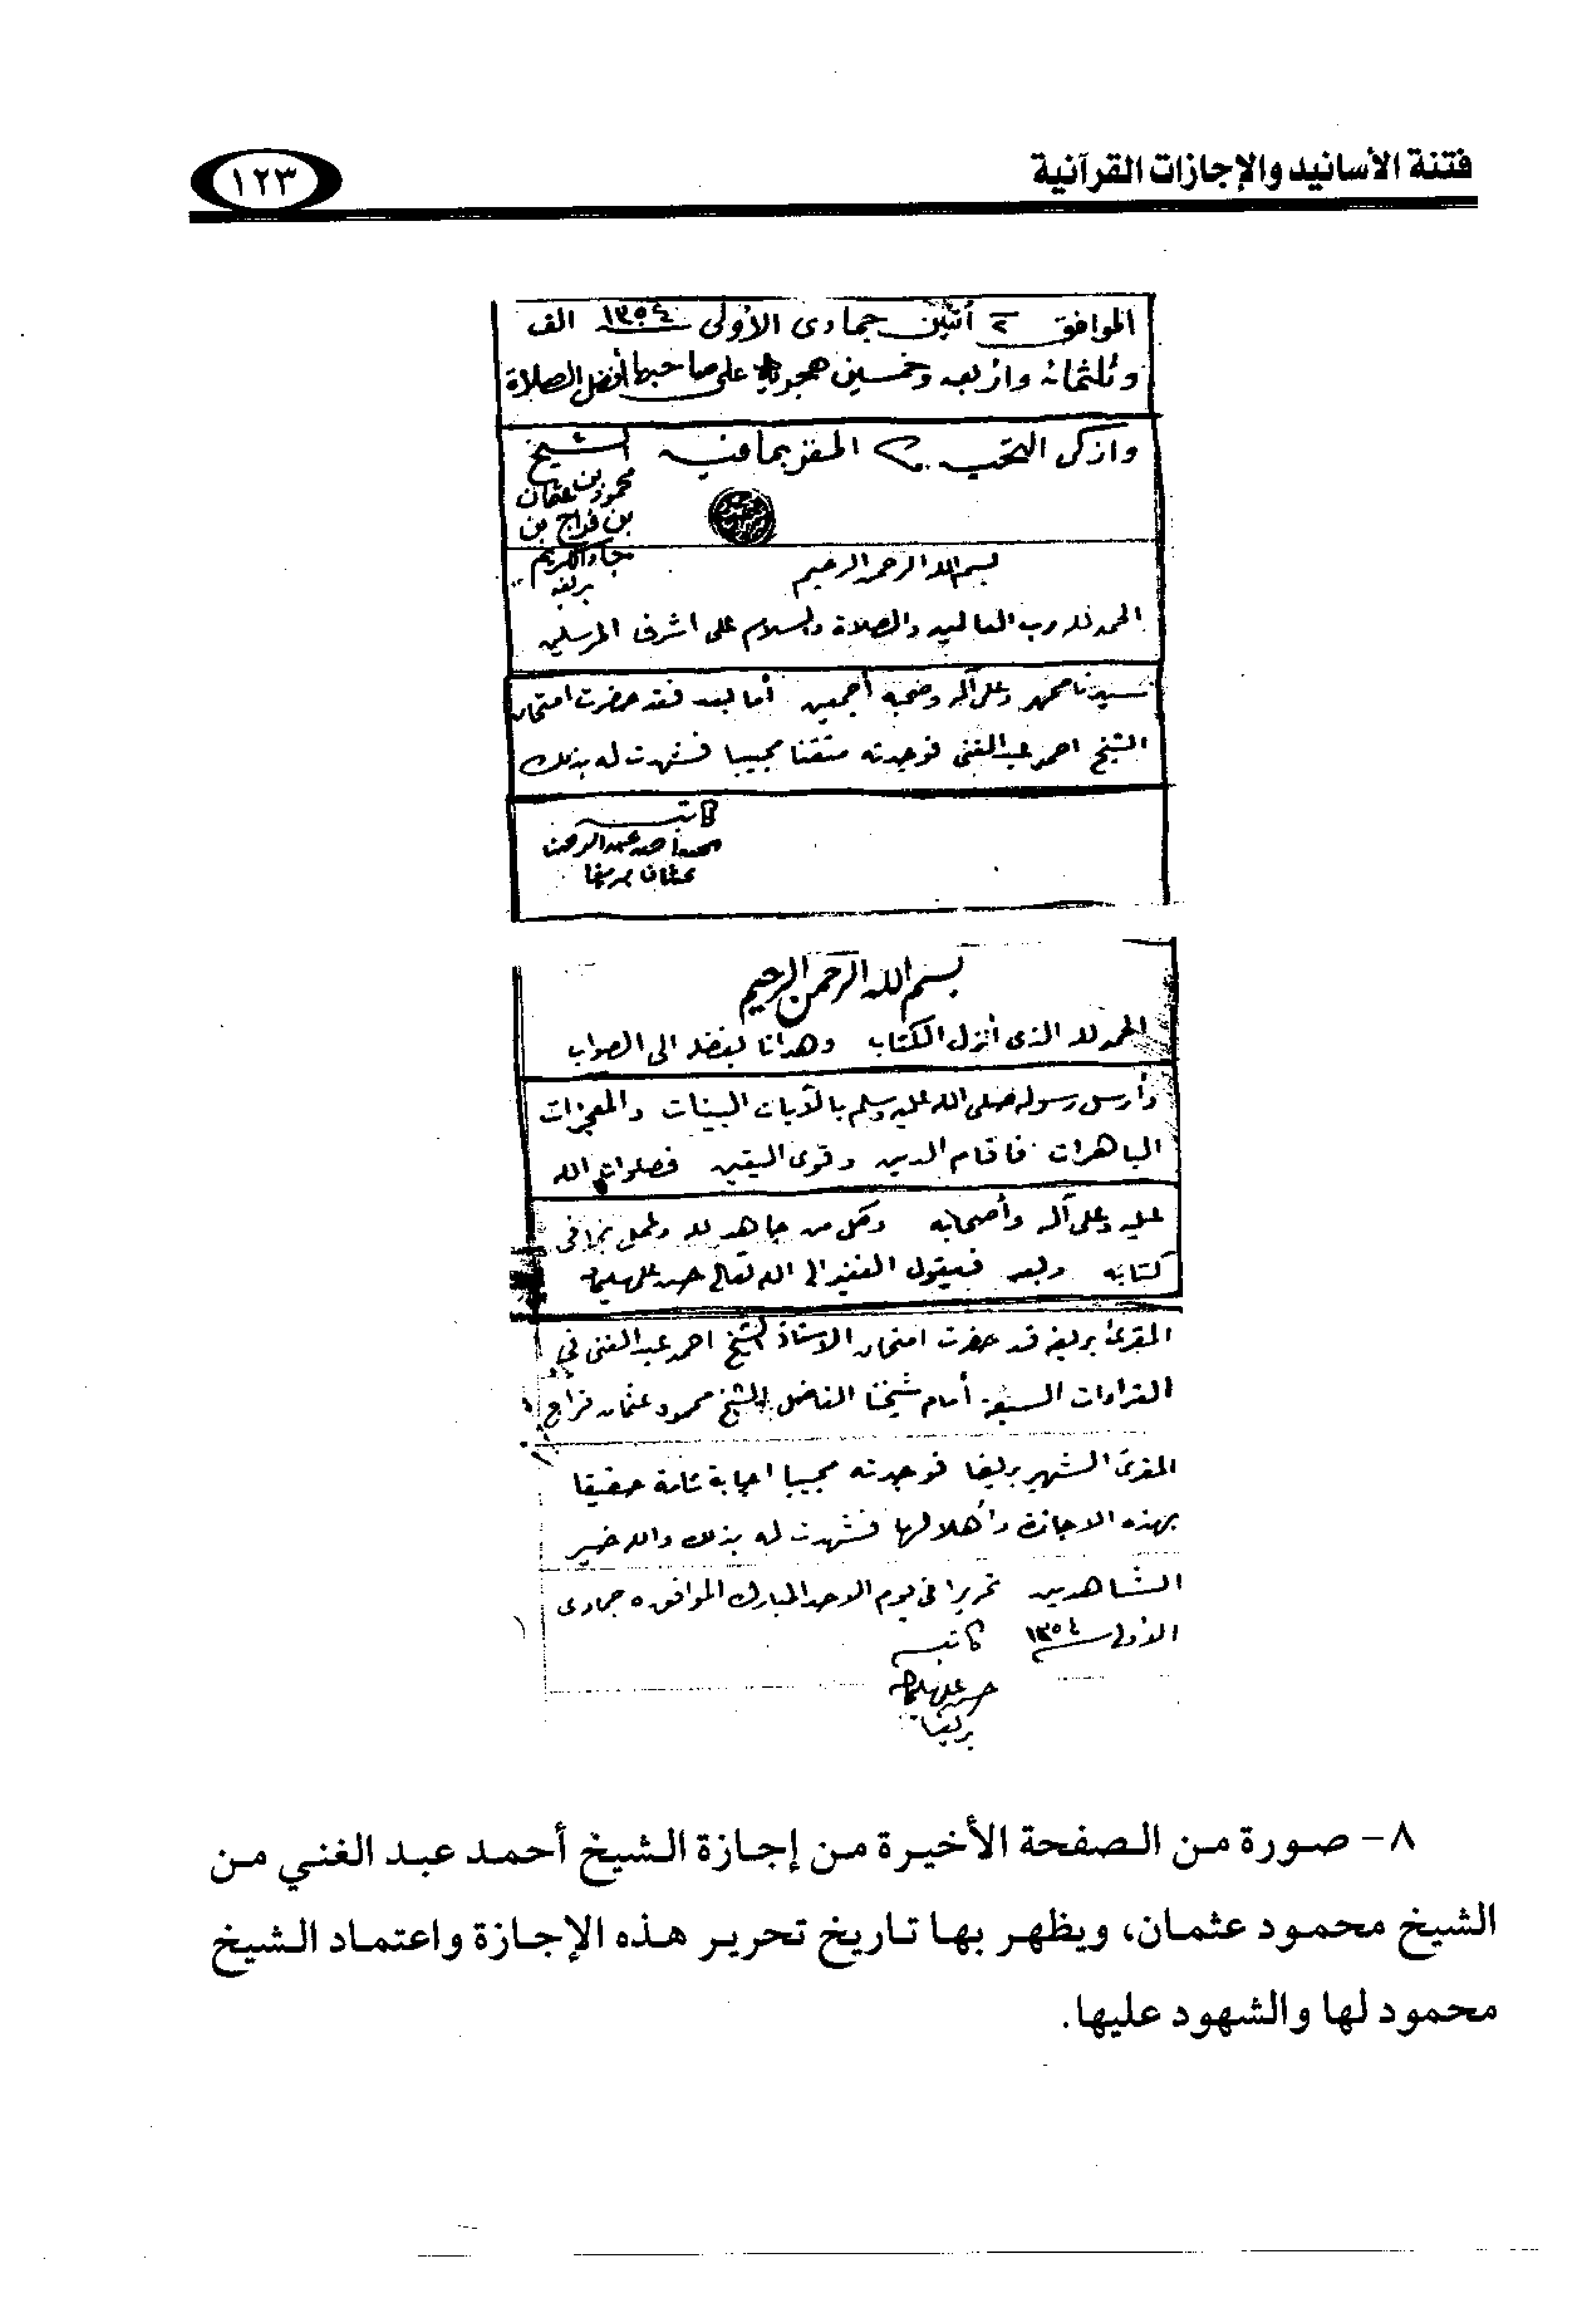 فتنة الأسانيد والإجازات القرآنية
١٢٣
الموافق ٢ أثنين جمادى الأولى ١٣٥٤ الف
وثلثمائه واربعه وخمسين هجريه على صاحبها أفضل الصلاة
وازكى التحيه المقر بما فيه الشيخ
محمود بن عثمان
بن فراج بن
جاد الكريم
بسم الله الرحمن الرحيم
الحمد لله رب العالمين والصلاة والسلام على اشرف المرسلين
سيدنا محمد وعلى آله وصحبه أجمعين أما بعد فقد حضرت امتحان
الشيخ احمد عبد الغنى فوجدته متقنا مجيبا فشهدت له بذلك
كاتبه
محمد احمد عبد الرحمن
عثمان
بسم الله الرحمن الرحيم
الحمد لله الذى أنزل الكتاب وهدانا بفضله الى الصواب
وأرسل رسوله صلى الله عليه وسلم بالآيات البينات والمعجزات
الباهرات فاقام الدين وقوى اليقين فصلوات الله
عليه وعلى آله وأصحابه وكل من جاهد لله وعمل بما فى
كتابه وبعد فيقول الفقير الى الله تعالى حسن على
المقرئ قد حضرت امتحان الاستاذ الشيخ احمد عبد الغنى في
القراءات السبعة أمام شيخنا الفاضل الشيخ محمود عثمان فراج
المقرئ الشهير فوجدته مجيبا اجابة تامة حقيقا
بهذه الاجازة وأهلا لها فشهدت له بذلك والله خير
الشاهدين تحريرا فى يوم الاحد المبارك الموافق ٥ جمادى
الأولى ١٣٥٤ كاتبه
حسن على
٨- صورة من الصفحة الأخيرة من إجازة الشيخ أحمد عبد الغني من
الشيخ محمود عثمان، ويظهر بها تاريخ تحرير هذه الإجازة واعتماد الشيخ
محمود لها والشهود عليها.